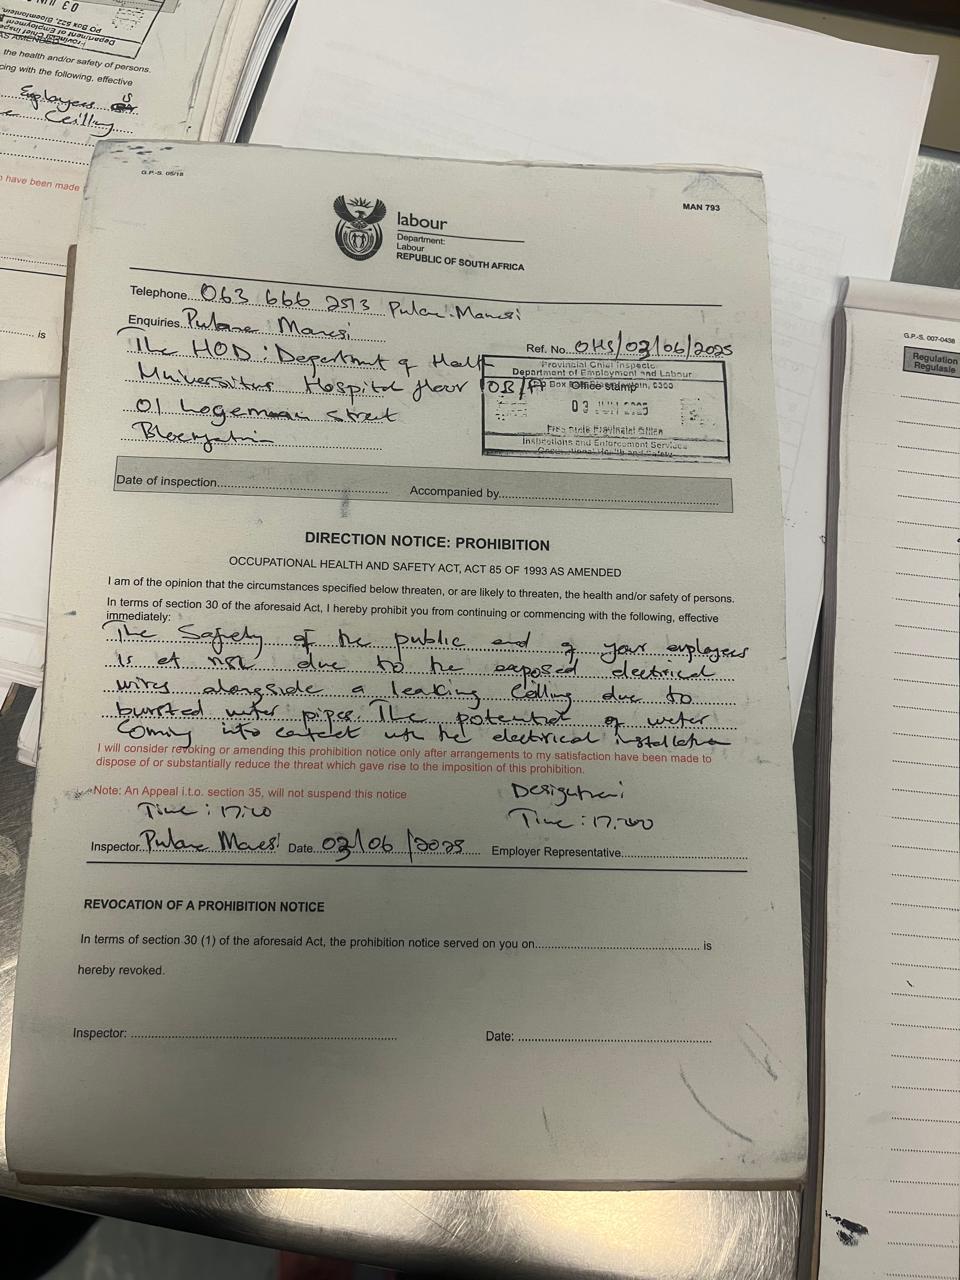 03 JUN
PO Box 522, Bloemfontein,
Department of Employment
Provincial Chief Inspe
AS AMENDED
the health and/or safety of persons.
cing with the following, effective
Employees is
Ceilling
have been made
is
G.P.-S. 05/18
MAN 793
labour
Department:
Labour
REPUBLIC OF SOUTH AFRICA
Telephone 063 666 2513 Pulane Manesi
Enquiries Pulane Manesi
The HOD: Department of Healt
Ref. No. OHS/03/06/2025
Universitus Hospital floor
01 Logeman street
Provincial Chief Inspecto
Department of Employment and Labour
Office stamp
03 JUN 2025
Free State Provincial Office
Inspections and Enforcement Services
Occupational Health and Safety
Date of inspection
Accompanied by
DIRECTION NOTICE: PROHIBITION
OCCUPATIONAL HEALTH AND SAFETY ACT, ACT 85 OF 1993 AS AMENDED
I am of the opinion that the circumstances specified below threaten, or are likely to threaten, the health and/or safety of persons.
In terms of section 30 of the aforesaid Act, I hereby prohibit you from continuing or commencing with the following, effective
immediately:
The Safety of the public and of your employees
is at risk due to the exposed electrical
wires alongside a leaking Ceilling due to
bursted water pipes. The potential of water
Coming into contact with the electrical installation
I will consider revoking or amending this prohibition notice only after arrangements to my satisfaction have been made to
dispose of or substantially reduce the threat which gave rise to the imposition of this prohibition.
Note: An Appeal i.t.o. section 35, will not suspend this notice
Designation:
Time: 17:20
Time: 17:
Inspector Pulane Manesi Date 03/06/2025 Employer Representative
REVOCATION OF A PROHIBITION NOTICE
In terms of section 30 (1) of the aforesaid Act, the prohibition notice served on you on is
hereby revoked.
Inspector:
Date:
G.P.-S. 007-0438
Regulation
Regulasie